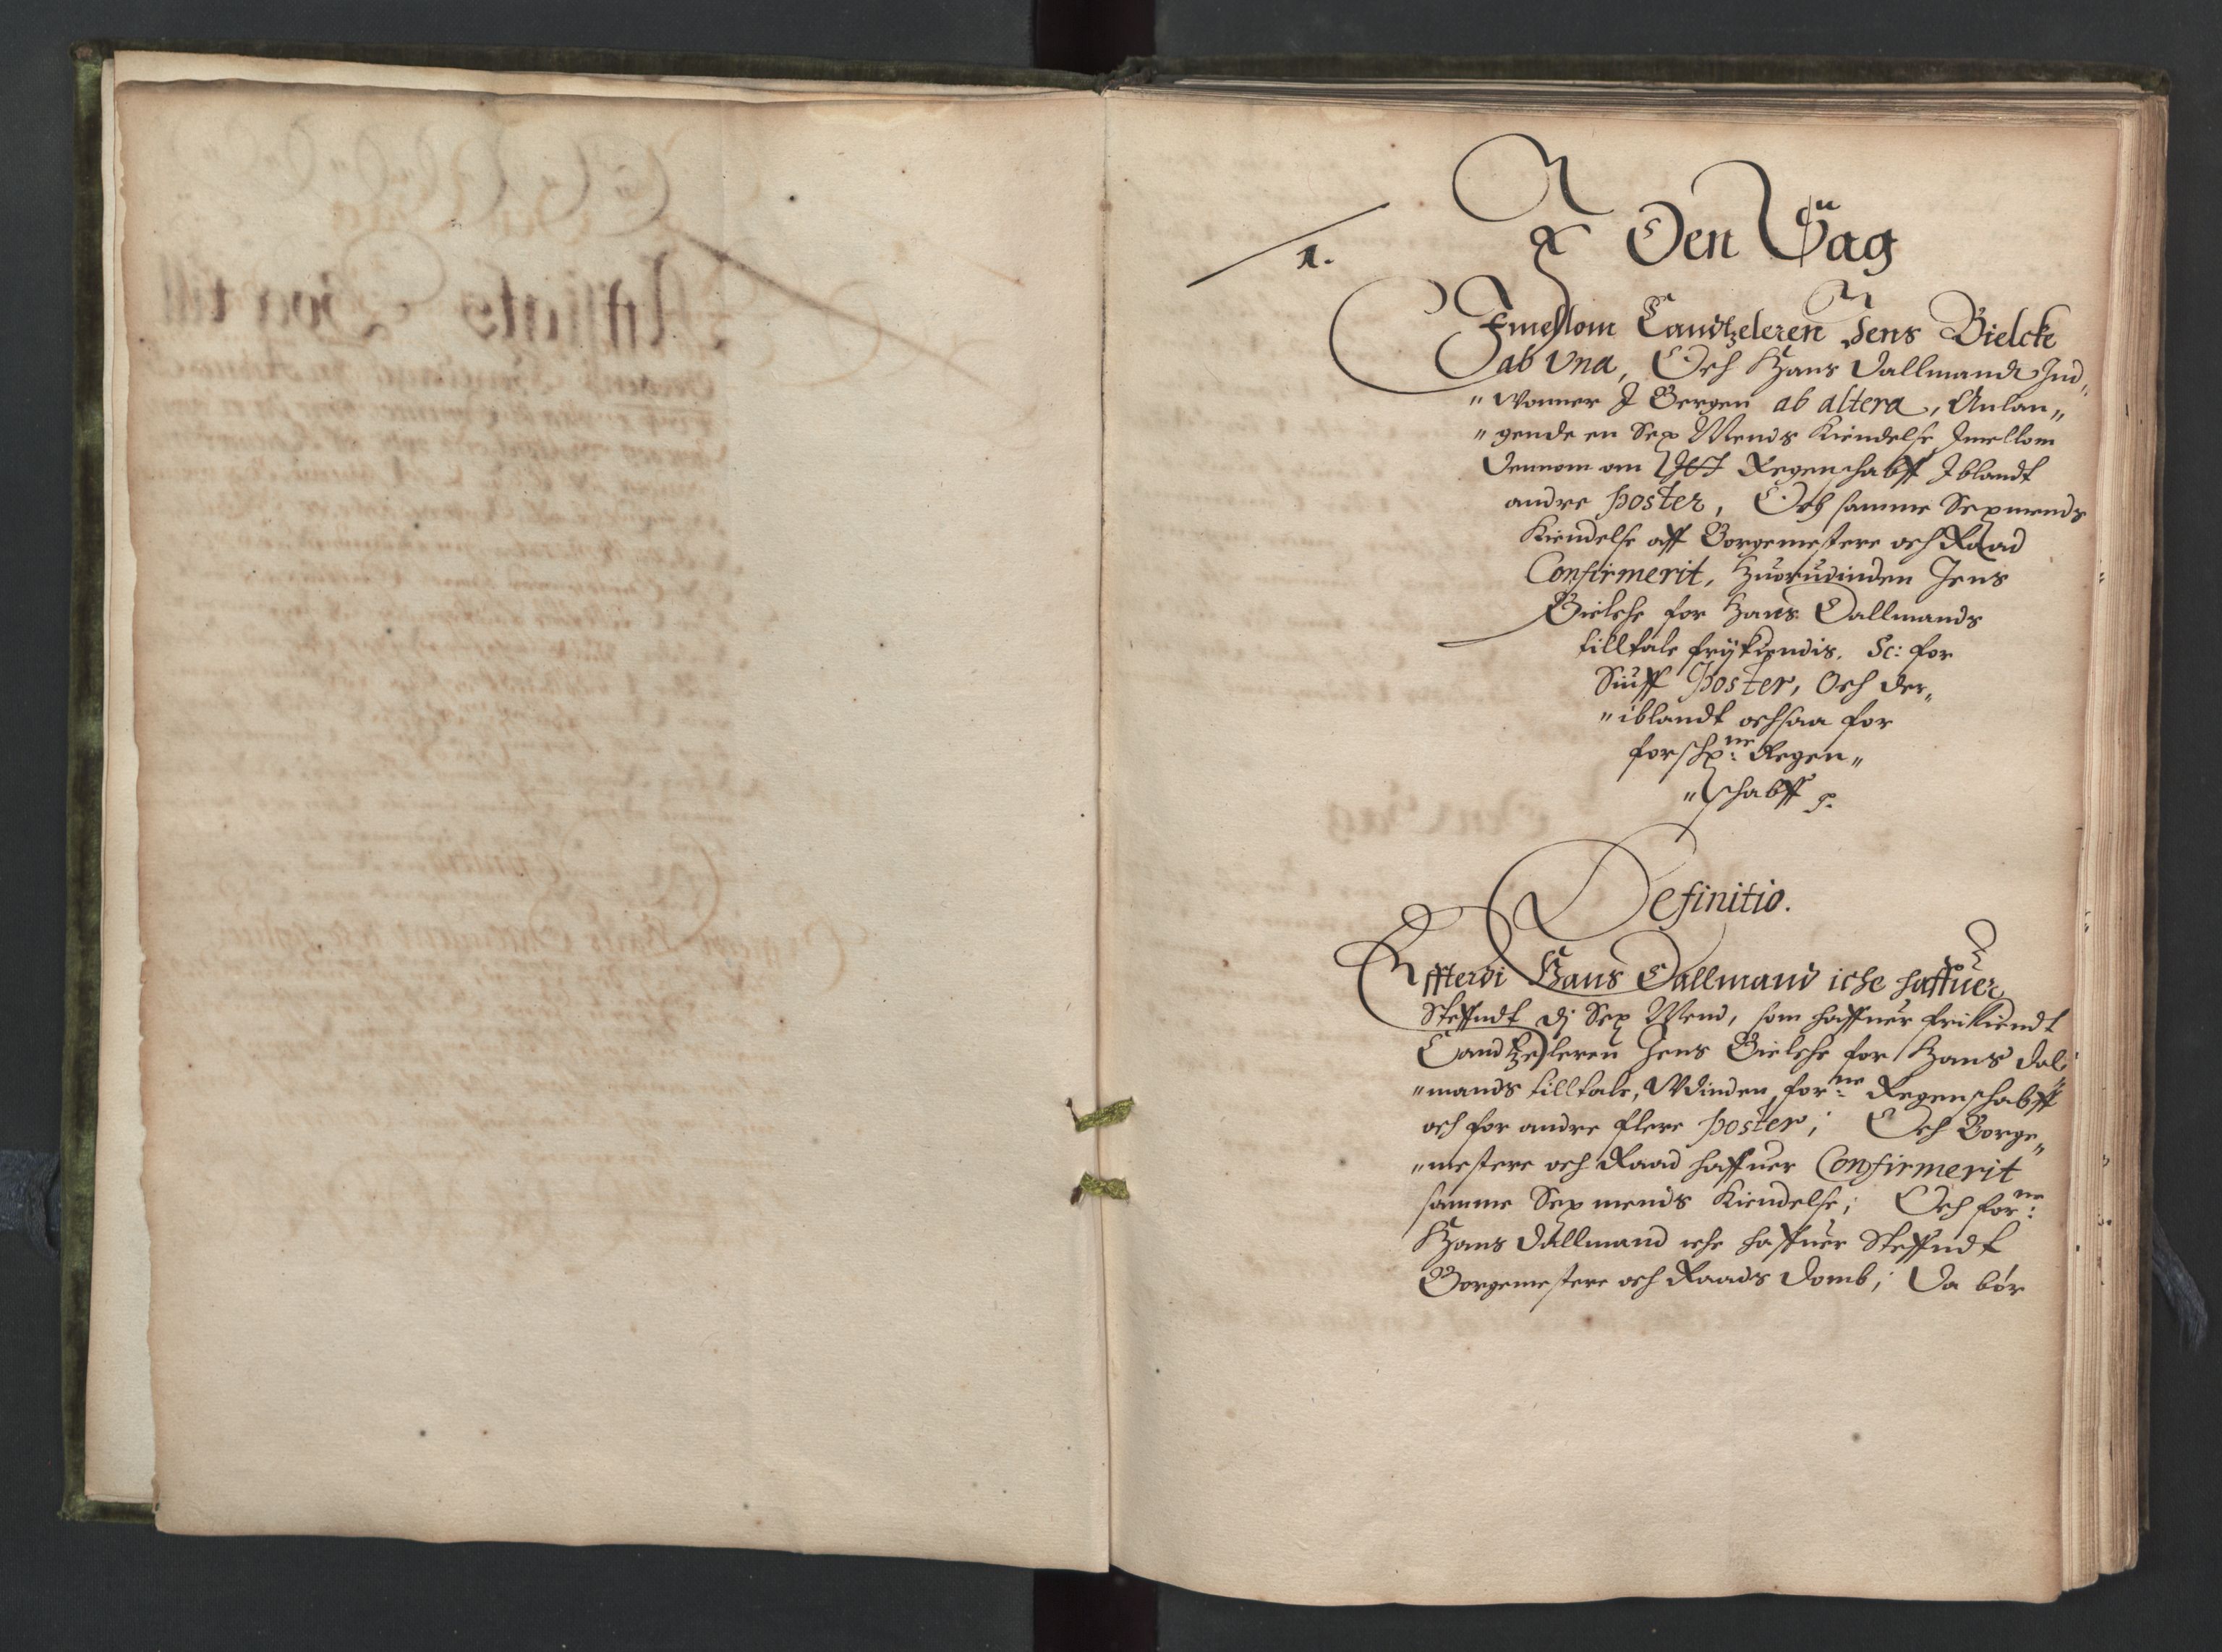 1.
Den Sag
Emellom Candtzeleren Jens Bielcke
ab una, Och Hans Dallmand Ind„
„wonner I Bergen ab altera, Anlan„
„gende en Sex Mends Kiendelse Imellom
dennom om Regenschabff Iblandt
andre poster, Och samme Sexmends
Kiendelse aff Borgemestere och Raad
Confirmerit, Huorudinden Jens
Bielche for Hans Dallmands
tilltale frijkiendis, Sc: for
Siuff poster, Och der„
„iblandt ochsaa for
forschr:ne Regen„
„schabff p.
Definitio.
Effterdi Hans Dallmand iche haffuer
Steffndt dj Sex Mend, som haffuer frikiendt
Candtzeleren Jens Bielche for Hans Dal„
„mands tilltale, Winden for:ne Regenschabff
och for andre flere poster; Och Borge„
„mestere och Raad haffuer Confirmerit
samme Sexmends Kiendelse; Och for:ne
Hans Dallmand iche haffuer Steffndt
Borgemestere och Raads Domb; Da bør